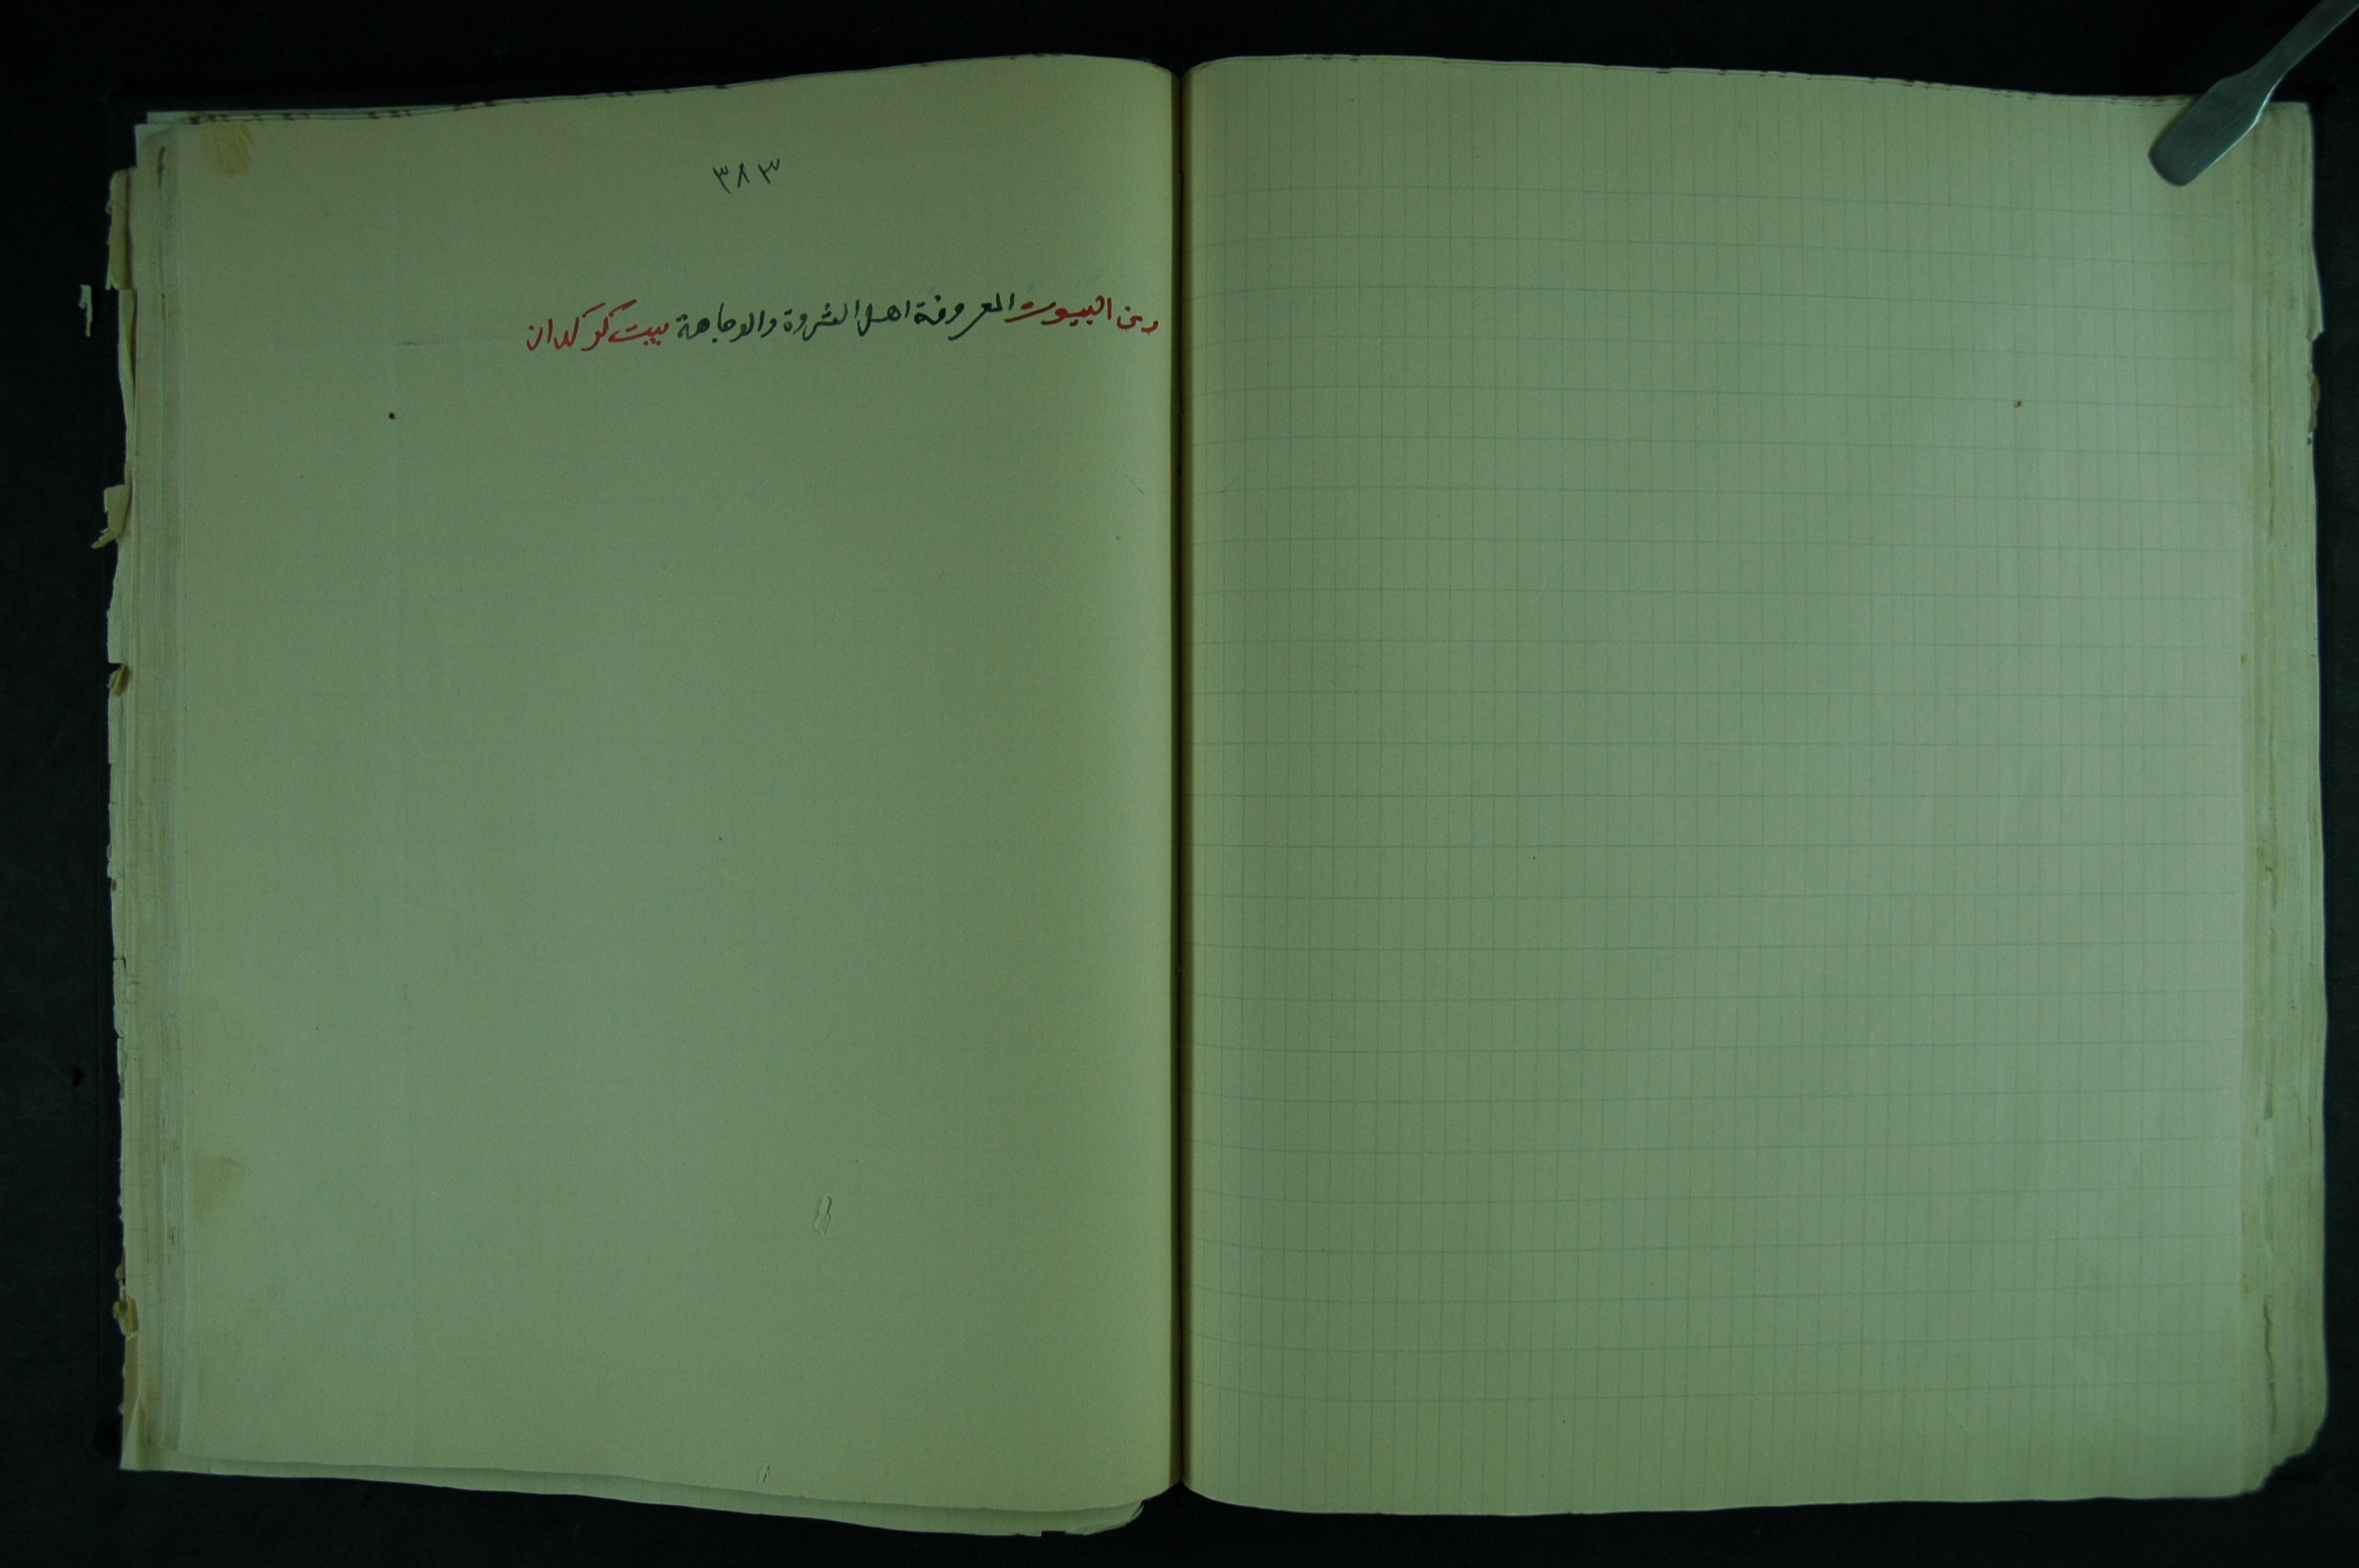 ٣٨٣
ومن البيوت المعروفة اهل الثروة والوجاهة بيت كوكدان